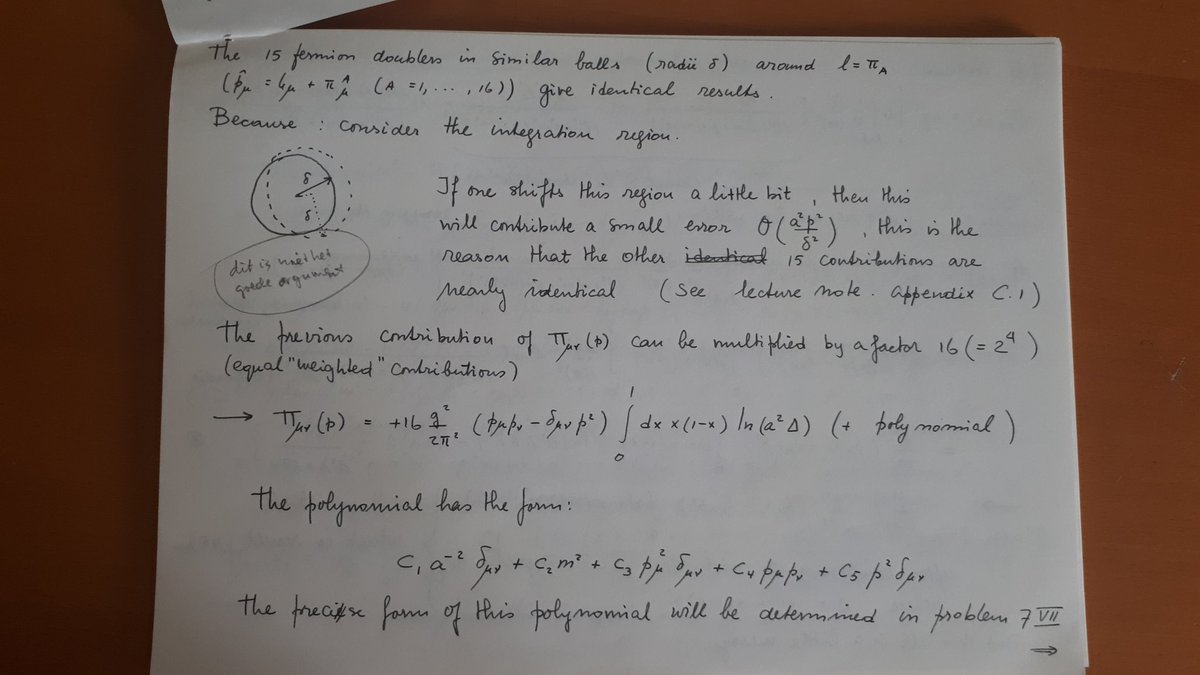 The 15 fermion doublers in similar balls (radii δ) around l = π_A
(p̃_μ = k_μ + π_μ^A (A = 1, ..., 16)) give identical results.
Because : consider the integration region.
δ
δ
If one shifts this region a little bit, then this
will contribute a small error O(a²p²/δ²), this is the
reason that the other identical 15 contributions are
nearly identical (See lecture note. appendix C.1)
dit is niet het
goede argument
The previous contribution of Π_μν(p) can be multiplied by a factor 16 (= 2⁴)
(equal "weighted" contributions)
→ Π_μν(p) = +16 g²/2π² (p_μ p_ν - δ_μν p²) ∫₀¹ dx x(1-x) ln(a²Δ) (+ polynomial)
The polynomial has the form:
C₁ a⁻² δ_μν + C₂ m² + C₃ p_μ² δ_μν + C₄ p_μ p_ν + C₅ p² δ_μν
The precise form of this polynomial will be determined in problem 7 VII
⇒